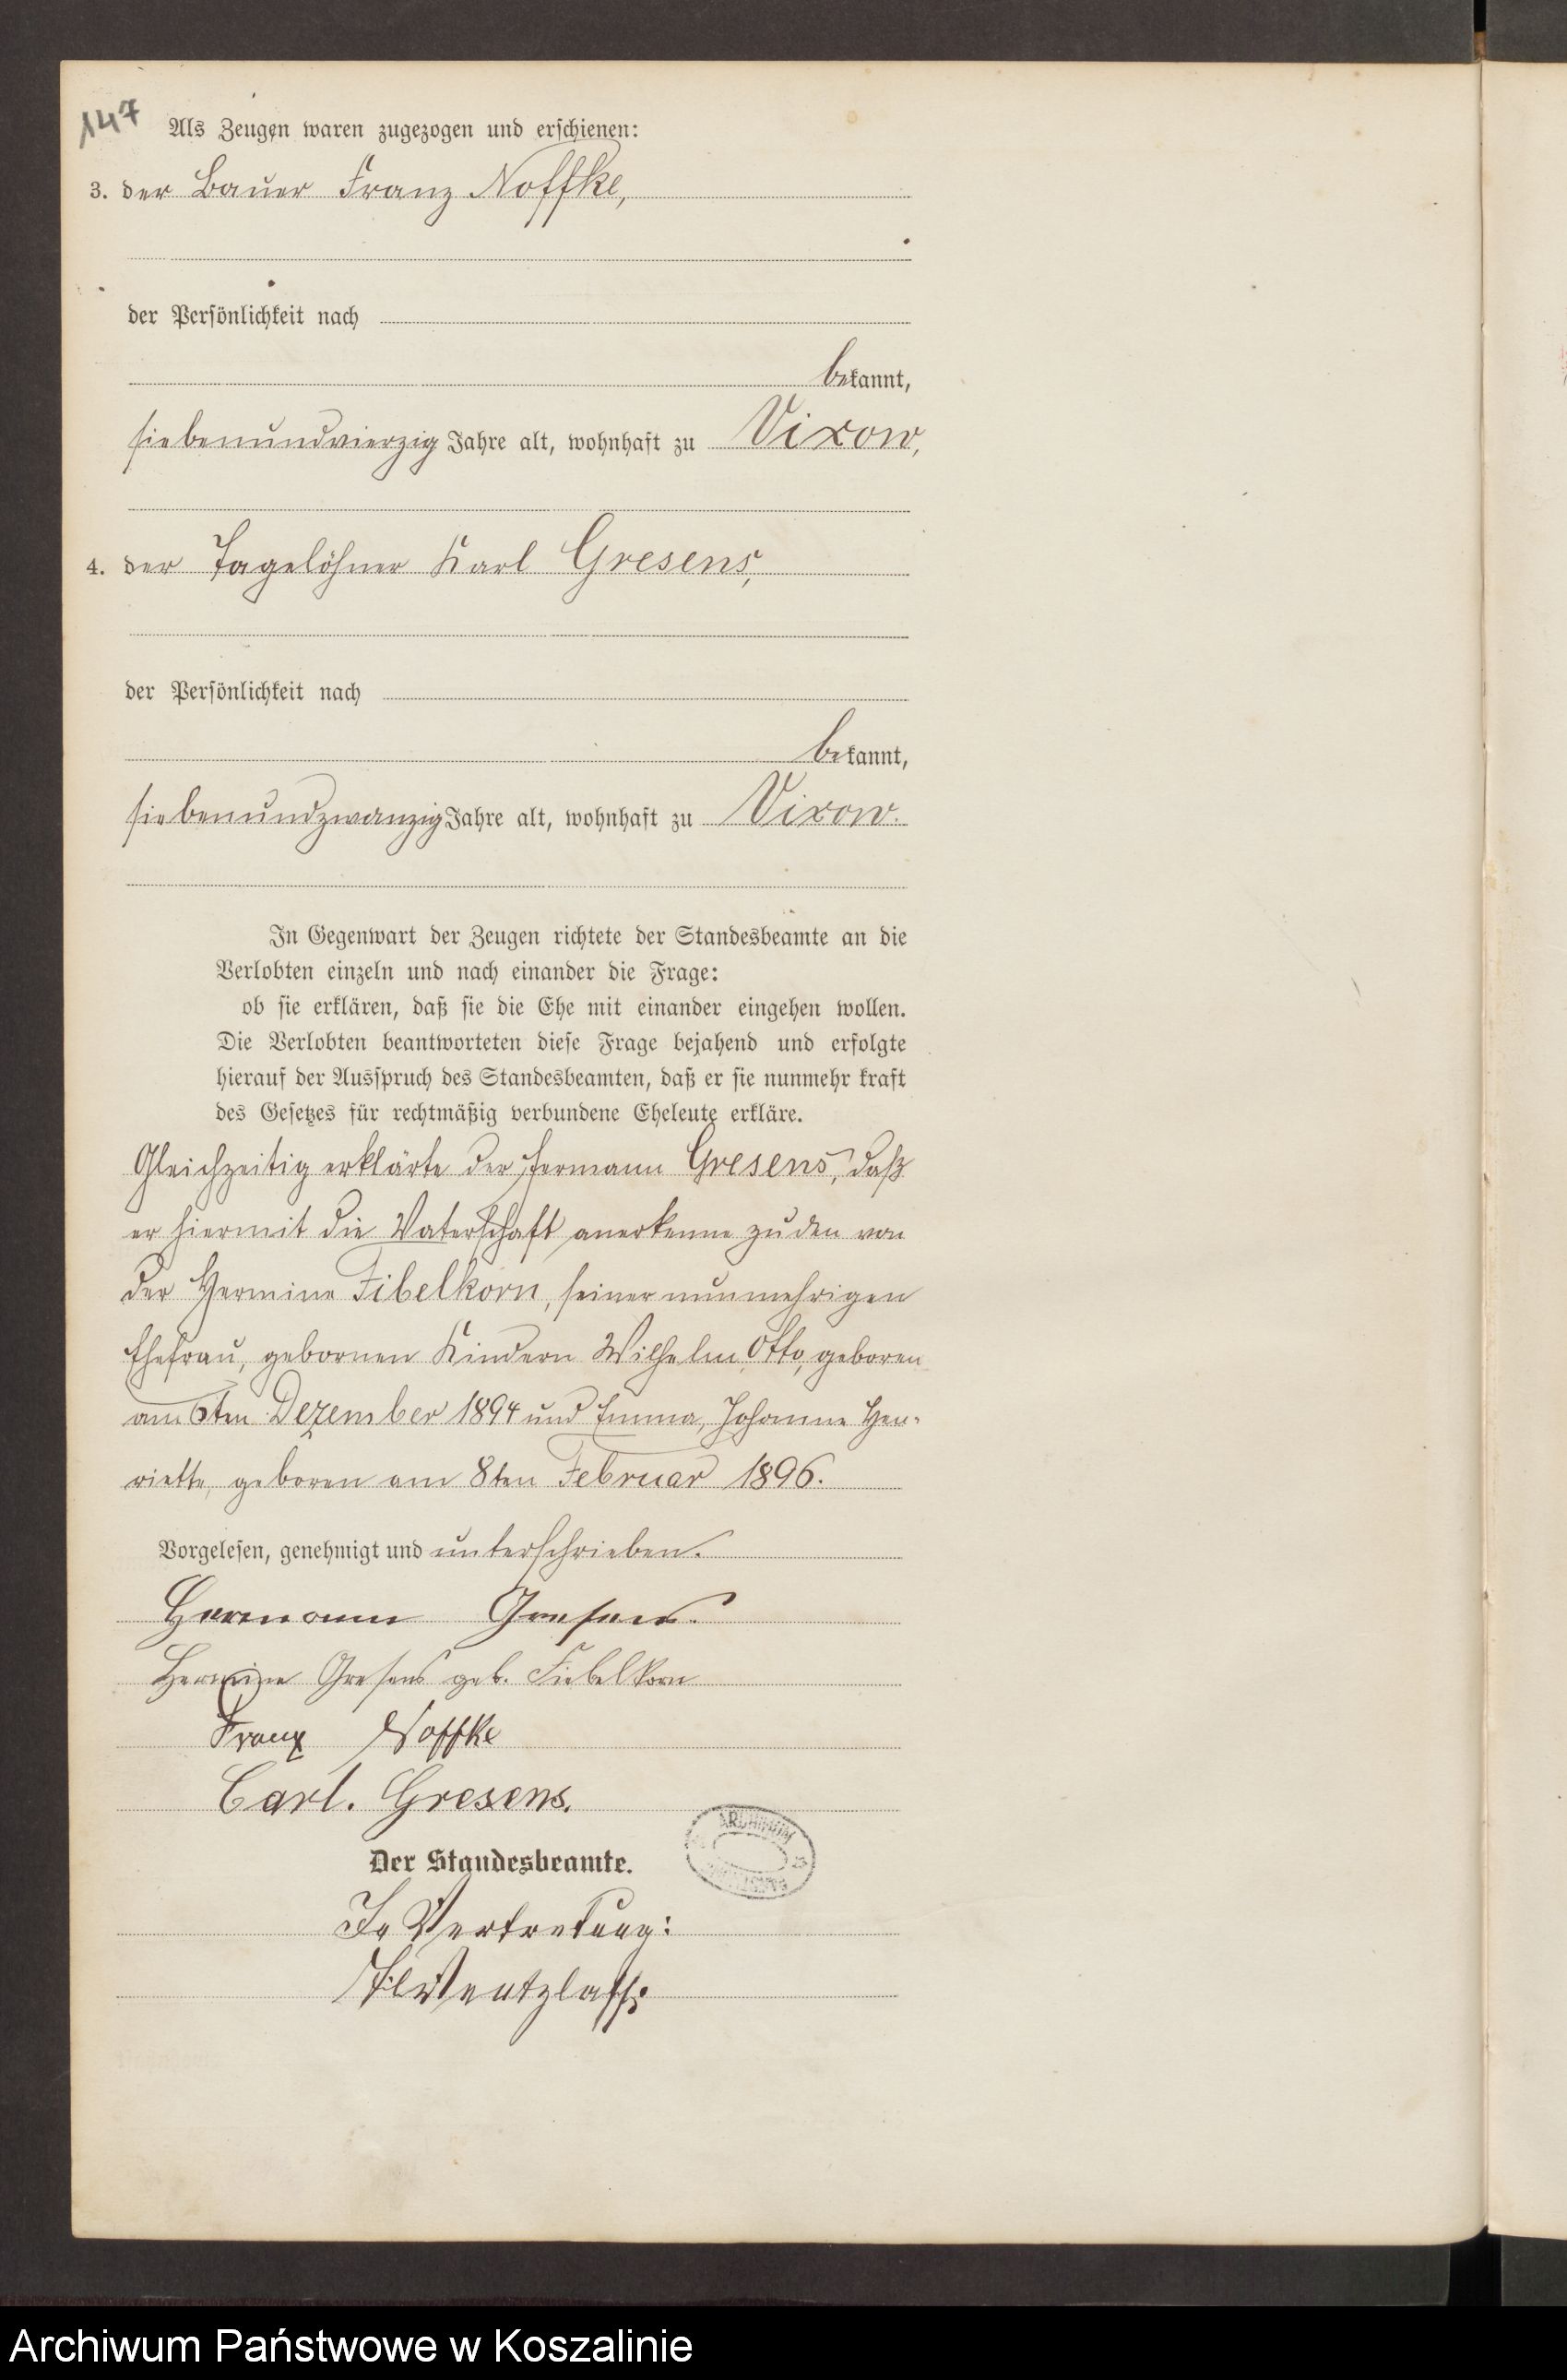 147
Als Zeugen waren zugezogen und erschienen:
3. der Bauer Franz Noffke,
der Persönlichkeit nach
bekannt,
siebenundvierzig Jahre alt, wohnhaft zu Vixow,
4. der Tagelöhner Karl Gresens,
der Persönlichkeit nach
bekannt,
siebenundzwanzig Jahre alt, wohnhaft zu Vixow.
In Gegenwart der Zeugen richtete der Standesbeamte an die
Verlobten einzeln und nach einander die Frage:
ob sie erklären, daß sie die Ehe mit einander eingehen wollen.
Die Verlobten beantworteten diese Frage bejahend und erfolgte
hierauf der Ausspruch des Standesbeamten, daß er sie nunmehr kraft
des Gesetzes für rechtmäßig verbundene Eheleute erkläre.
Gleichzeitig erklärte der Hermann Gresens, daß
er hiermit die Vaterschaft anerkenne zu den von
der Hermine Fibelkorn, seiner nunmehrigen
Ehefrau, gebornen Kindern Wilhelm, Otto, geboren
am 6ten Dezember 1894 und Emma, Johanne Hen-
riette, geboren am 8ten Februar 1896.
Vorgelesen, genehmigt und unterschrieben.
Hermann Gresens.
Hermine Gresens geb. Fiebelkorn
Franz Noffke
Carl. Gresens.
ARCHIWUM
Der Standesbeamte.
In Vertretung:
Wentzlaff.
Archiwum Państwowe w Koszalinie